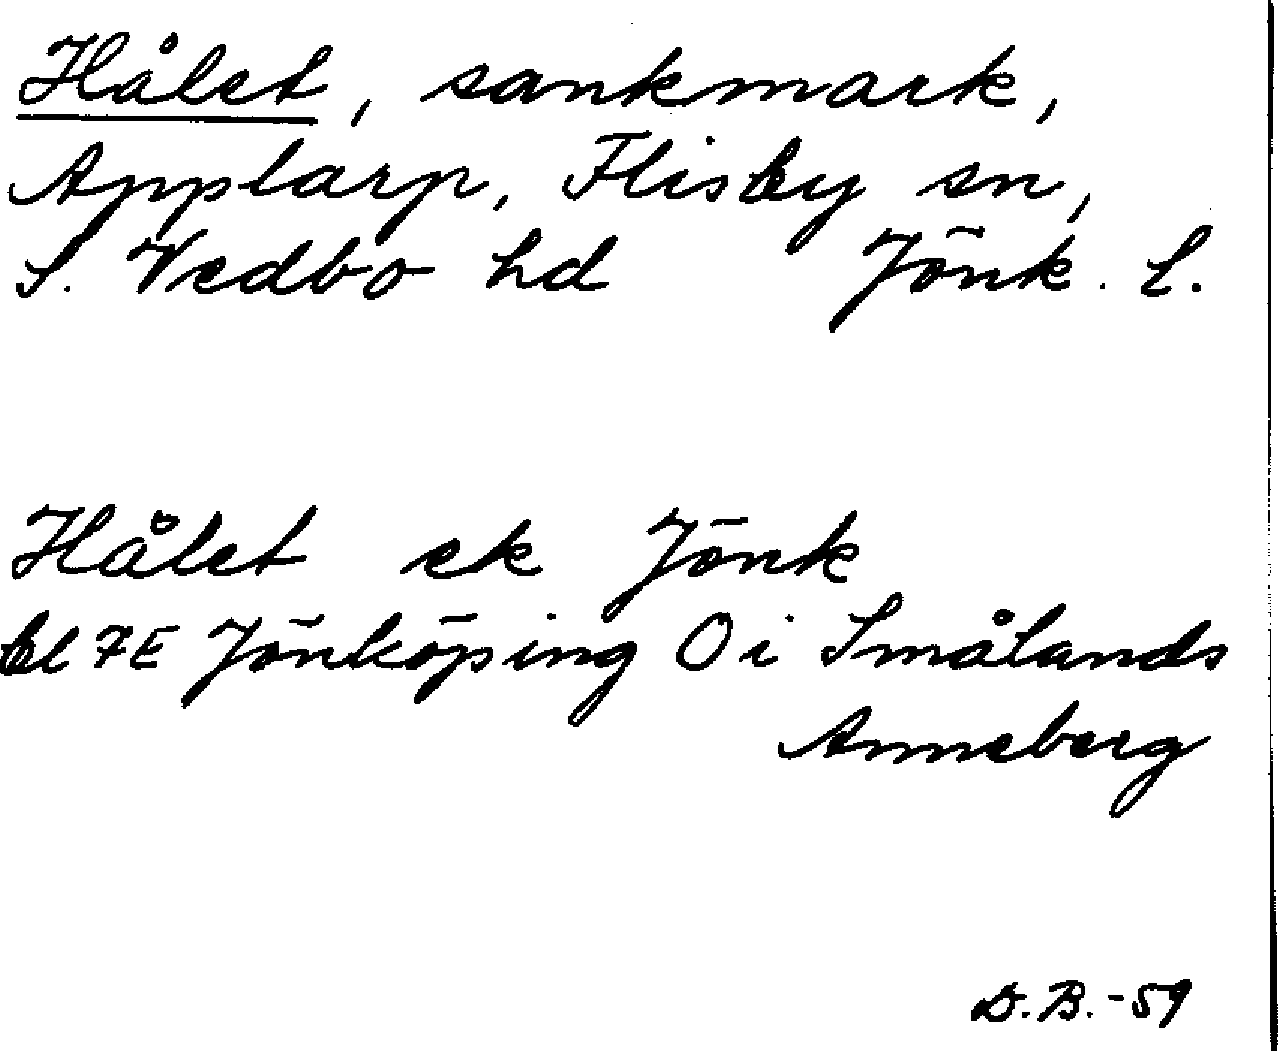 Hålet, sankmark,
Applarp, Flisby sn,
S. Vedbo hd Jönk. l.
Hålet ek Jönk
bl 7E Jönköping O i Smålands
Anneberg
D.B.-59